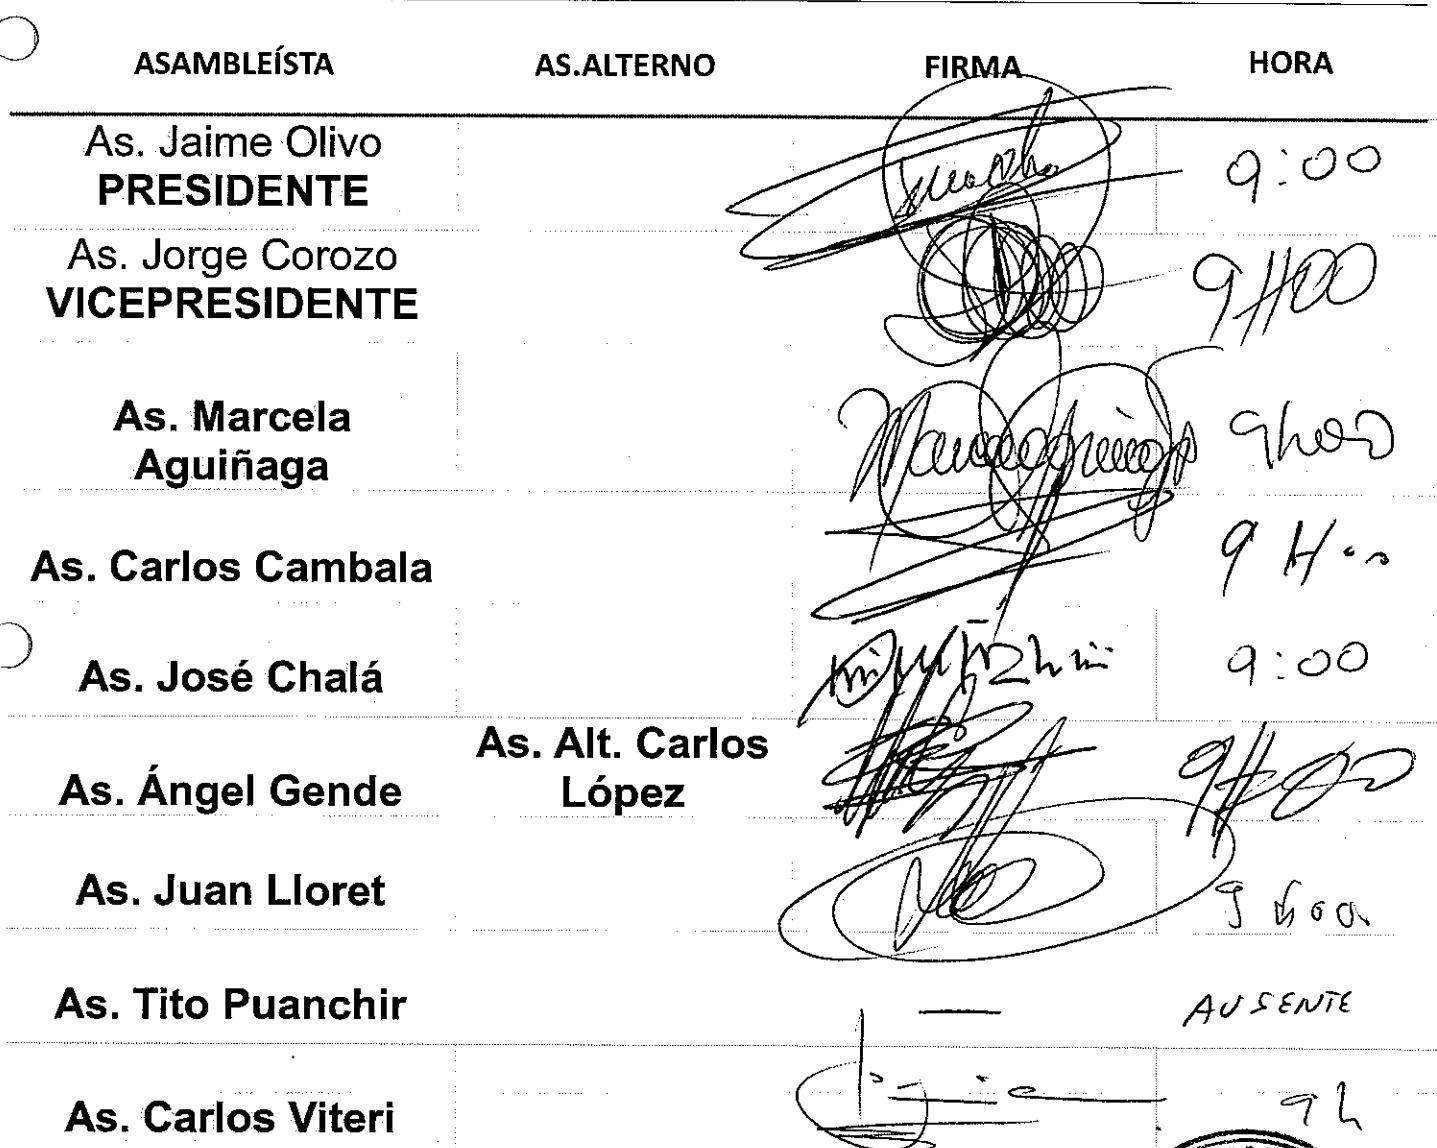 ASAMBLEÍSTA AS.ALTERNO FIRMA HORA
As. Jaime Olivo
PRESIDENTE
9:00
As. Jorge Corozo
VICEPRESIDENTE
9H00
As. Marcela
Aguiñaga
9h00
As. Carlos Cambala
9H00
As. José Chalá
9:00
As. Ángel Gende
As. Alt. Carlos
López
9H00
As. Juan Lloret
9h00
As. Tito Puanchir
— AUSENTE
As. Carlos Viteri
9h